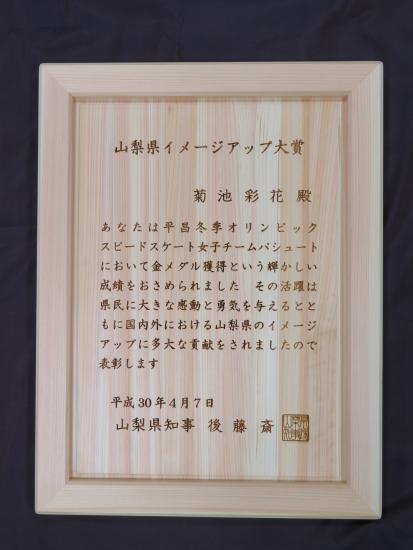 山梨県イメージアップ大賞
菊池彩花殿
あなたは平昌冬季オリンピック
スピードスケート女子チームパシュート
において金メダル獲得という輝かしい
成績をおさめられました　その活躍は
県民に大きな感動と勇気を与えるとと
もに国内外における山梨県のイメージ
アップに多大な貢献をされましたので
表彰します
平成30年4月7日
山梨県知事 後藤斎